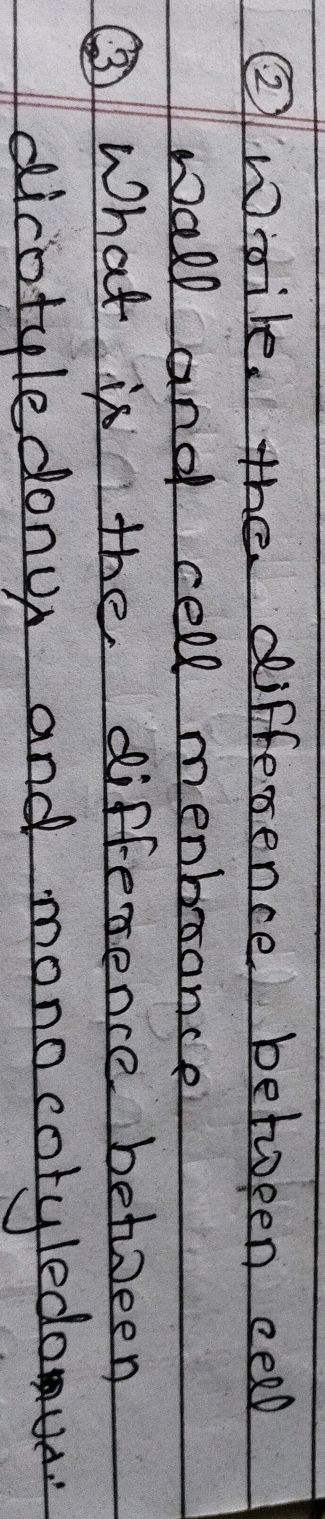 ② Write the difference between cell
wall and cell menbrance
③ What is the difference between
dicotyledonus and monocotyledonus.